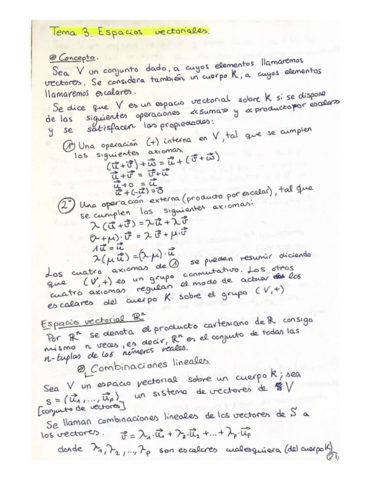 Tema 3. Espacios vectoriales.
Concepto.
Sea V un conjunto dado, a cuyos elementos llamaremos
vectores. Se considera también un cuerpo K, a cuyos elementos
llamaremos escalares.
Se dice que V es un espacio vectorial sobre K si se dispone
de las siguientes operaciones «suma» y «producto por escalar»
y se satisfacen las propiedades:
① Una operación (+) interna en V, tal que se cumplen
los siguientes axiomas:
(u⃗+v⃗)+w⃗ = u⃗+(v⃗+w⃗)
u⃗+v⃗ = v⃗+u⃗
u⃗+0 = u⃗
u⃗+(-u⃗) = 0⃗
② Una operación externa (producto por escalar), tal que
se cumplen los siguientes axiomas:
λ(u⃗+v⃗) = λu⃗+λv⃗
(λ+μ)·v⃗ = λv⃗+μ·v⃗
1u⃗ = u⃗
λ(μu⃗) = (λ·μ)·u⃗
Los cuatro axiomas de ① se pueden resumir diciendo
que (V,+) es un grupo conmutativo. Los otros
cuatro axiomas regulan el modo de actuar los
escalares del cuerpo K sobre el grupo (V,+)
Espacio vectorial ℝⁿ
Por ℝⁿ se denota el producto cartesiano de ℝ consigo
mismo n veces, es decir, ℝⁿ es el conjunto de todas las
n-tuplas de los números reales.
Combinaciones lineales
Sea V un espacio vectorial sobre un cuerpo K; sea
S = (u⃗₁, ..., u⃗p) un sistema de vectores de V
[conjunto de vectores]
Se llaman combinaciones lineales de los vectores de S a
los vectores. v⃗ = λ₁·u⃗₁ + λ₂·u⃗₂ + ... + λp·u⃗p
donde λ₁, λ₂, ..., λp son escalares cualesquiera (del cuerpo K)